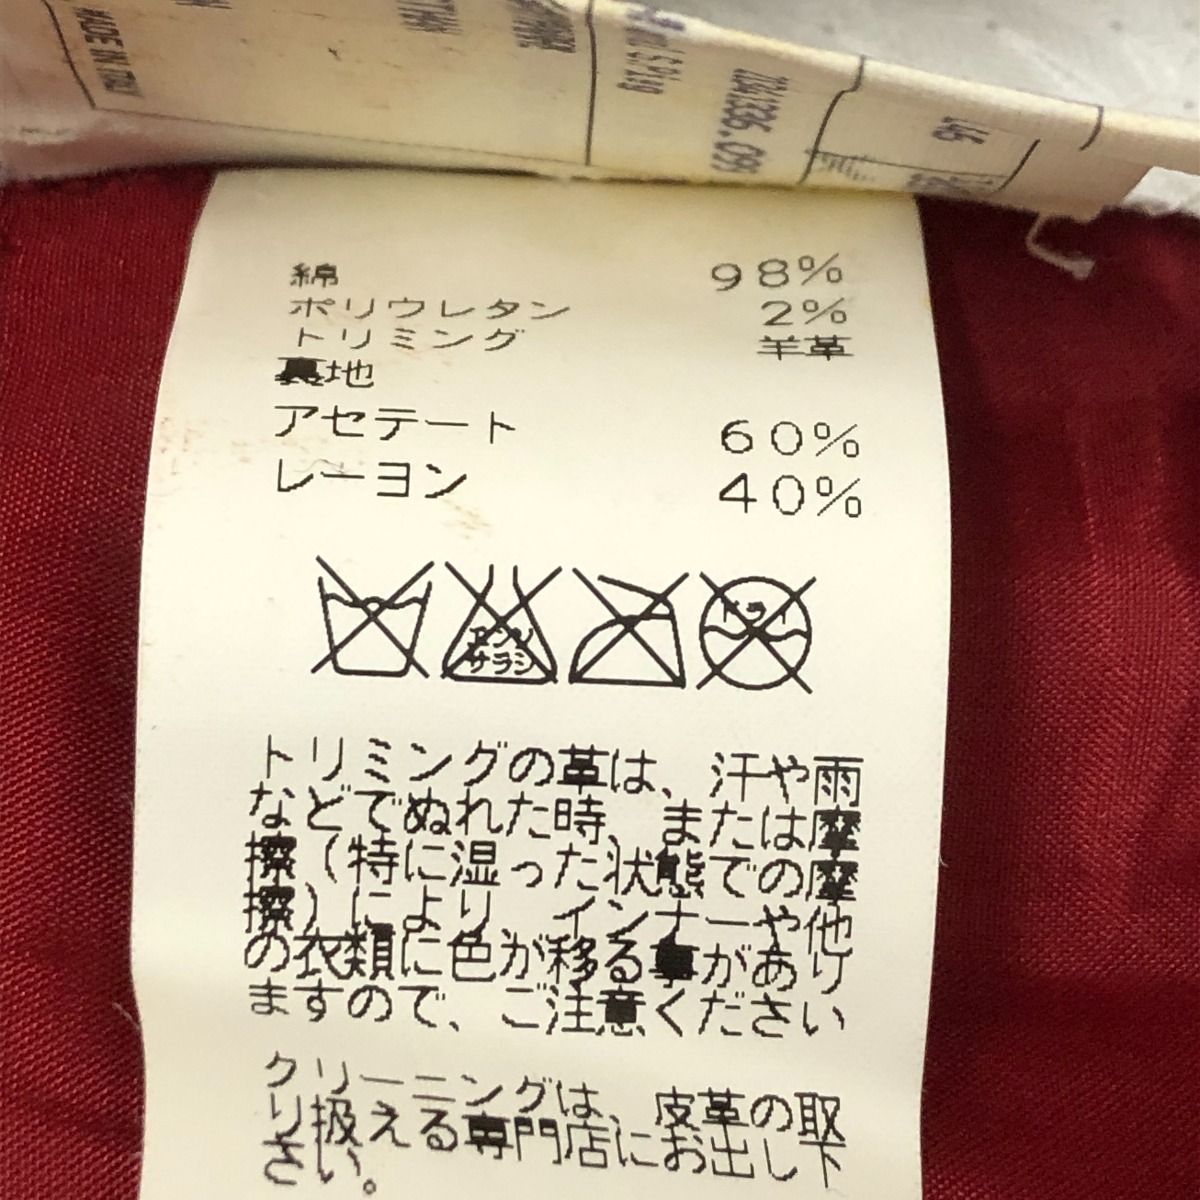 MADE IN ITALY
綿 98%
ポリウレタン 2%
トリミング 羊革
裏地
アセテート 60%
レーヨン 40%
エンソ
サラシ
ドライ
トリミングの革は、汗や雨
などでぬれた時、または摩
擦(特に湿った状態での摩
擦)により、インナーや他
の衣類に色が移る事があり
ますので、ご注意ください
クリーニングは、皮革の取
り扱える専門店にお出し下
さい。